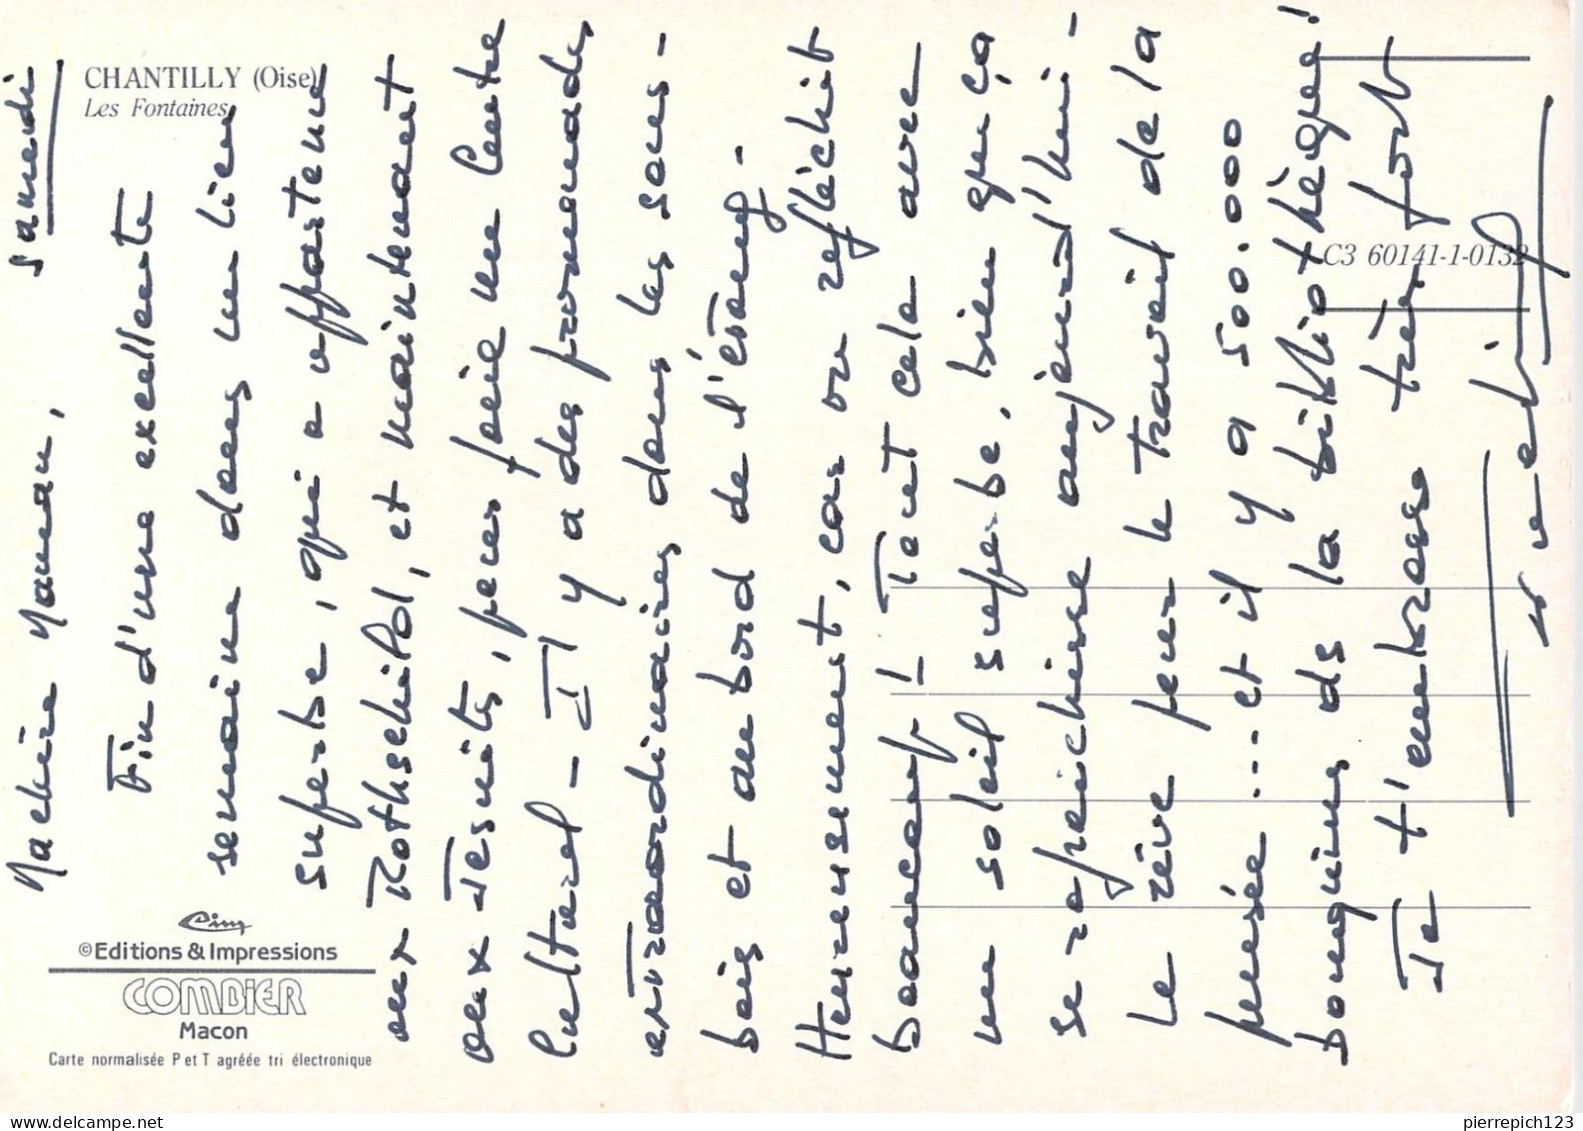 CHANTILLY (Oise)
Les Fontaines
C3 60141-1-0132
Cim
©Editions & Impressions
COMBIER
Macon
Carte normalisée P et T agréée tri électronique
samedi
Ma chère Maman,
Fin d'une excellente
semaine dans un lieu
superbe, qui a appartenu
aux Rothschild, et maintenant
aux Jesuites, pour faire un Centre
Culturel - Il y a des promenades
extraordinaires dans les sous-
bois et au bord de l'étang -
Heureusement, car on réfléchit
beaucoup ! Tout cela avec
un soleil superbe, bien que ça
se rafraichisse aujourd'hui -
Le rêve pour le travail de la
pensée... et il y a 500.000
bouquins ds la bibliothèque !
Je t'embrasse très fort
www.delcampe.net
pierrepich123